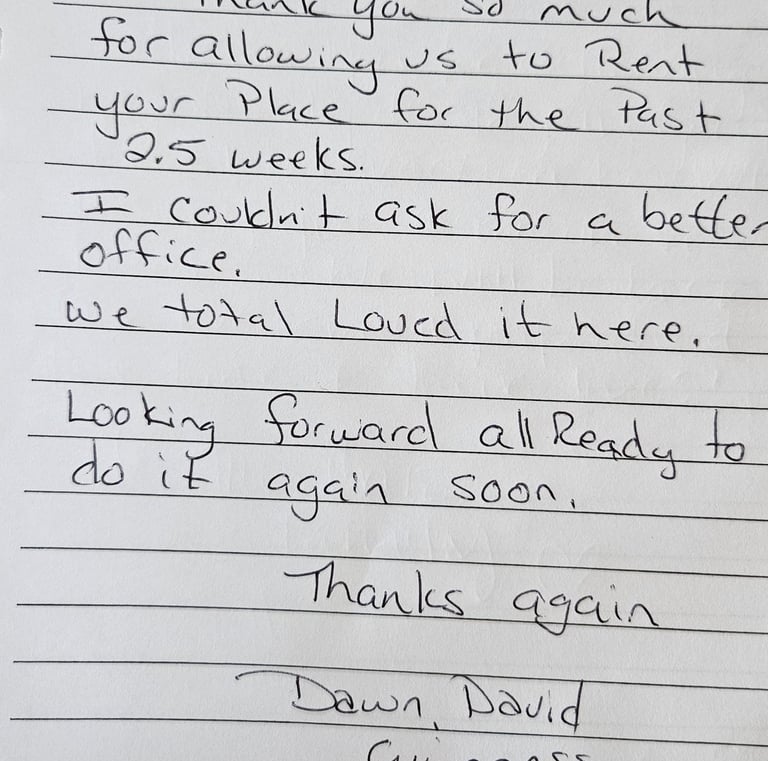 Thank you so much
for allowing us to Rent
your Place for the Past
2.5 weeks.
I couldn't ask for a better
office.
we total Loved it here.
Looking forward all Ready to
do it again soon.
Thanks again
Dawn, David